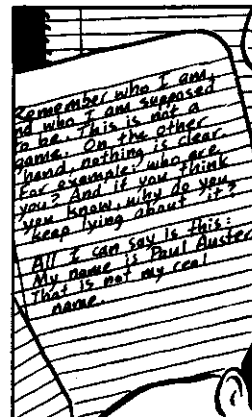 Remember who I am,
nd who I am supposed
to be. This is not a
game. On the other
hand, nothing is clear.
For example: who are
you? And if you think
you know, why do you
keep lying about it?
All I can say is this:
My name is Paul Auster.
That is not my real
name.